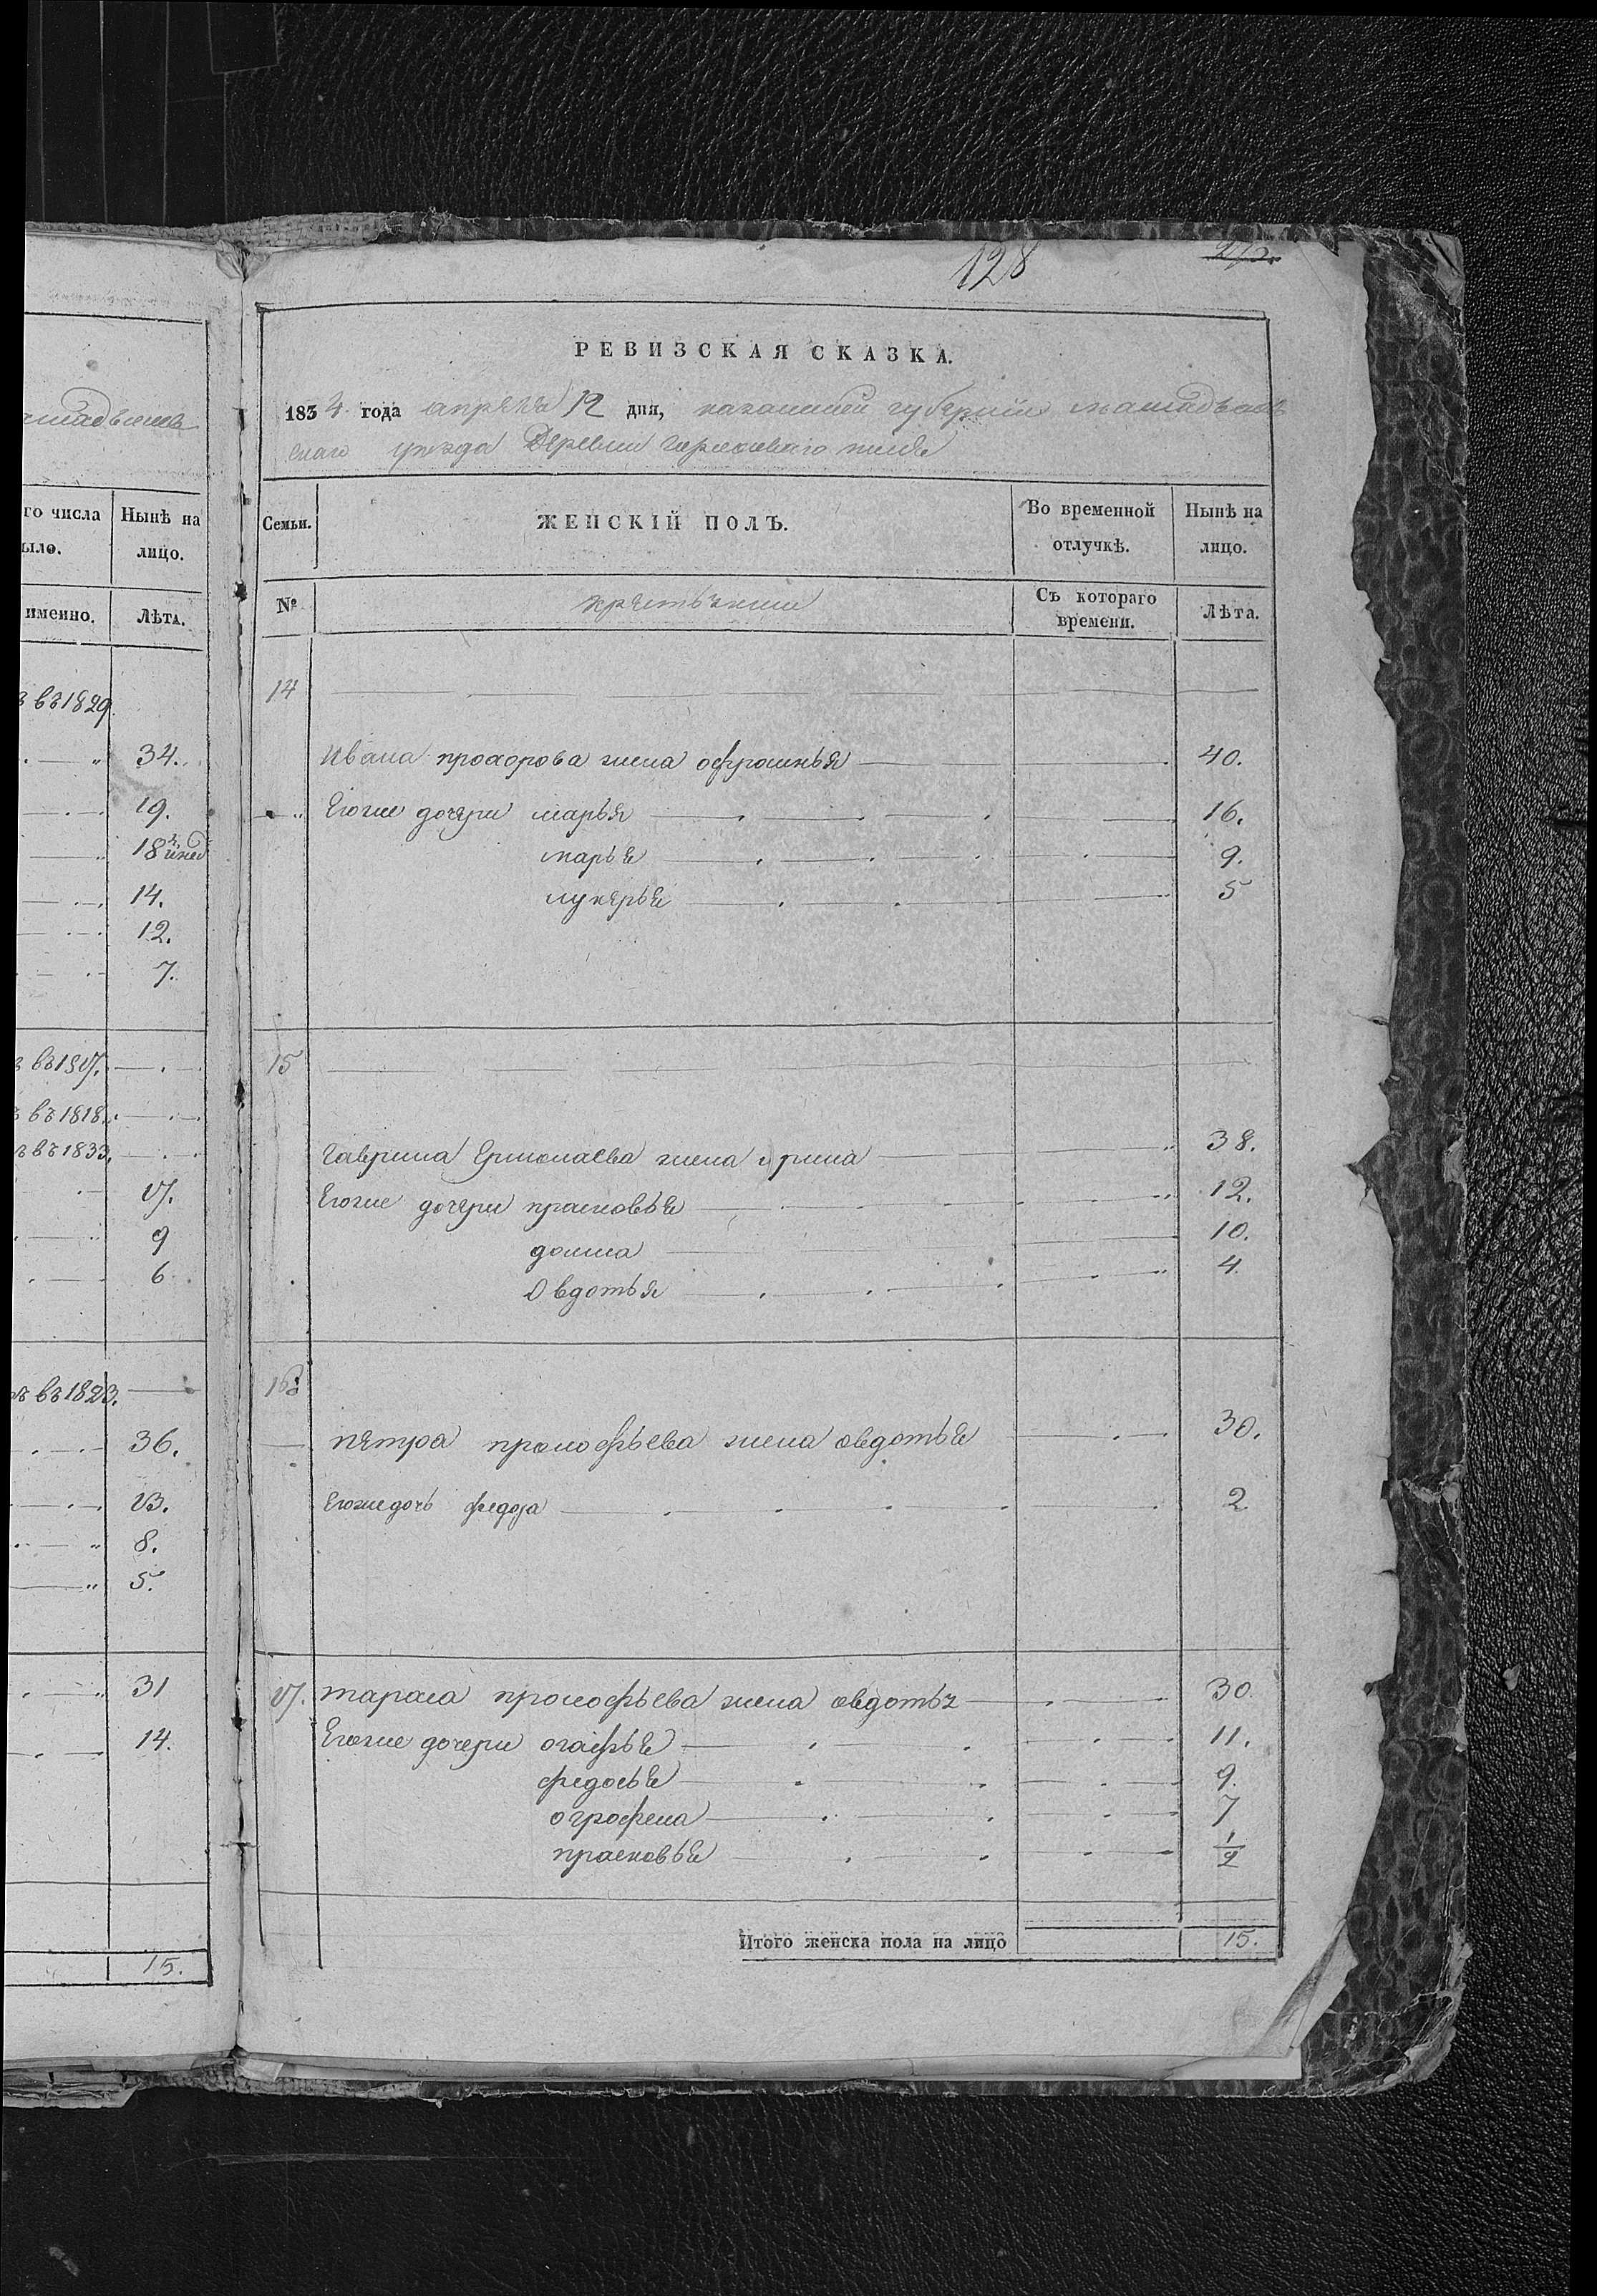 амадышев
го числа Нынѣ на
ыло. лицо.
именно. Лѣта.
въ 1829.
34.
19.
18
14.
12.
7.
въ 1817.
въ 1818.
въ 1833.
17.
9
6
въ 1823.
36.
13.
8.
5.
31
14.
15.
128
РЕВИЗСКАЯ СКАЗКА.
1834 года апреля 12 дня, казанской губернии мамадышев
скаго уезда Деревни
Семьи. ЖЕНСКІЙ ПОЛЪ. Во временной отлучкѣ. Нынѣ на лицо.
№ Съ котораго времени. Лѣта.
14
Ивана прохорова жена офросинья 40.
Егоже дочери марья 16.
марья 9.
лукерья 5
15
Гаврила Ермолаева жена ирина 38.
Егоже дочери прасковья 12.
домна 10.
Овдотья 4
16
петра прокофьева жена овдотья 30.
Егоже дочь 2.
17. тараса прокофьева жена овдотья 30
Егоже дочери огафья 11.
федосья 9.
огрофена 7
прасковья 1/2
Итого женска пола на лицо 15.